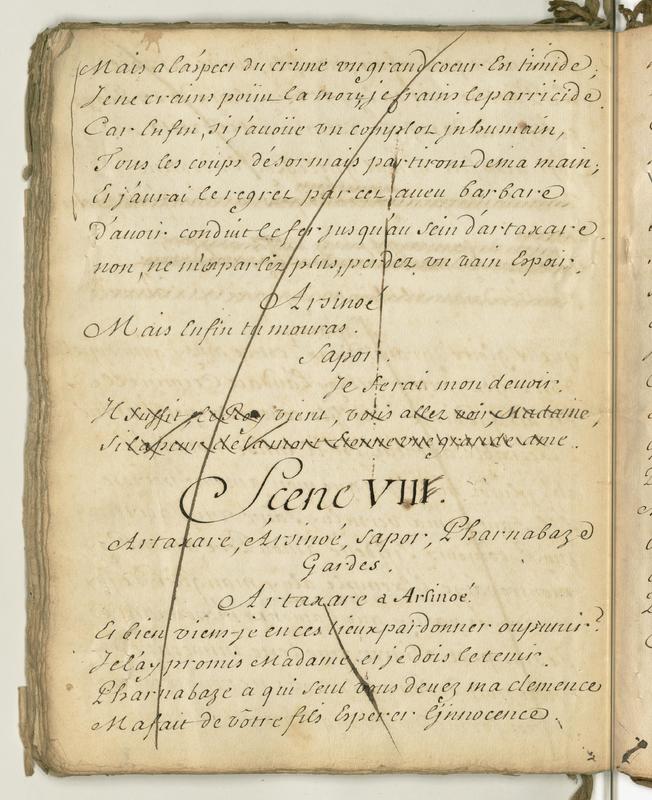 Mais a laspect du crime vn grand coeur En timide;
Je ne crains point la mort, je crains le parricide
Car Enfin, si j'auoüe vn complot jnhumain,
Tous les coups désormais partiront de ma main;
Et j'aurai le regret par cet aueu barbare
d'auoir conduit le fer jusqu'au sein d'artaxare.
non, ne m'en parlez plus, perdez vn vain Espoir.
Arsinoé
Mais Enfin tu mouras.
Sapor.
Je ferai mon deuoir.
Il suffit, le Roy vient, vous allez voir, Madame,
Si la peur de la mort Etonne vne grande ame.
Scene VIII.
Artaxare, Arsinoé, Sapor, Pharnabaze
Gardes.
Artaxare a Arsinoé.
Et bien viens-je en ces lieux pardonner ou punir?
Je l'ay promis Madame, et je dois le tenir.
Pharnabaze a qui seul vous deuez ma clemence
M'a fait de vôtre fils Esperer l'jnnocence.